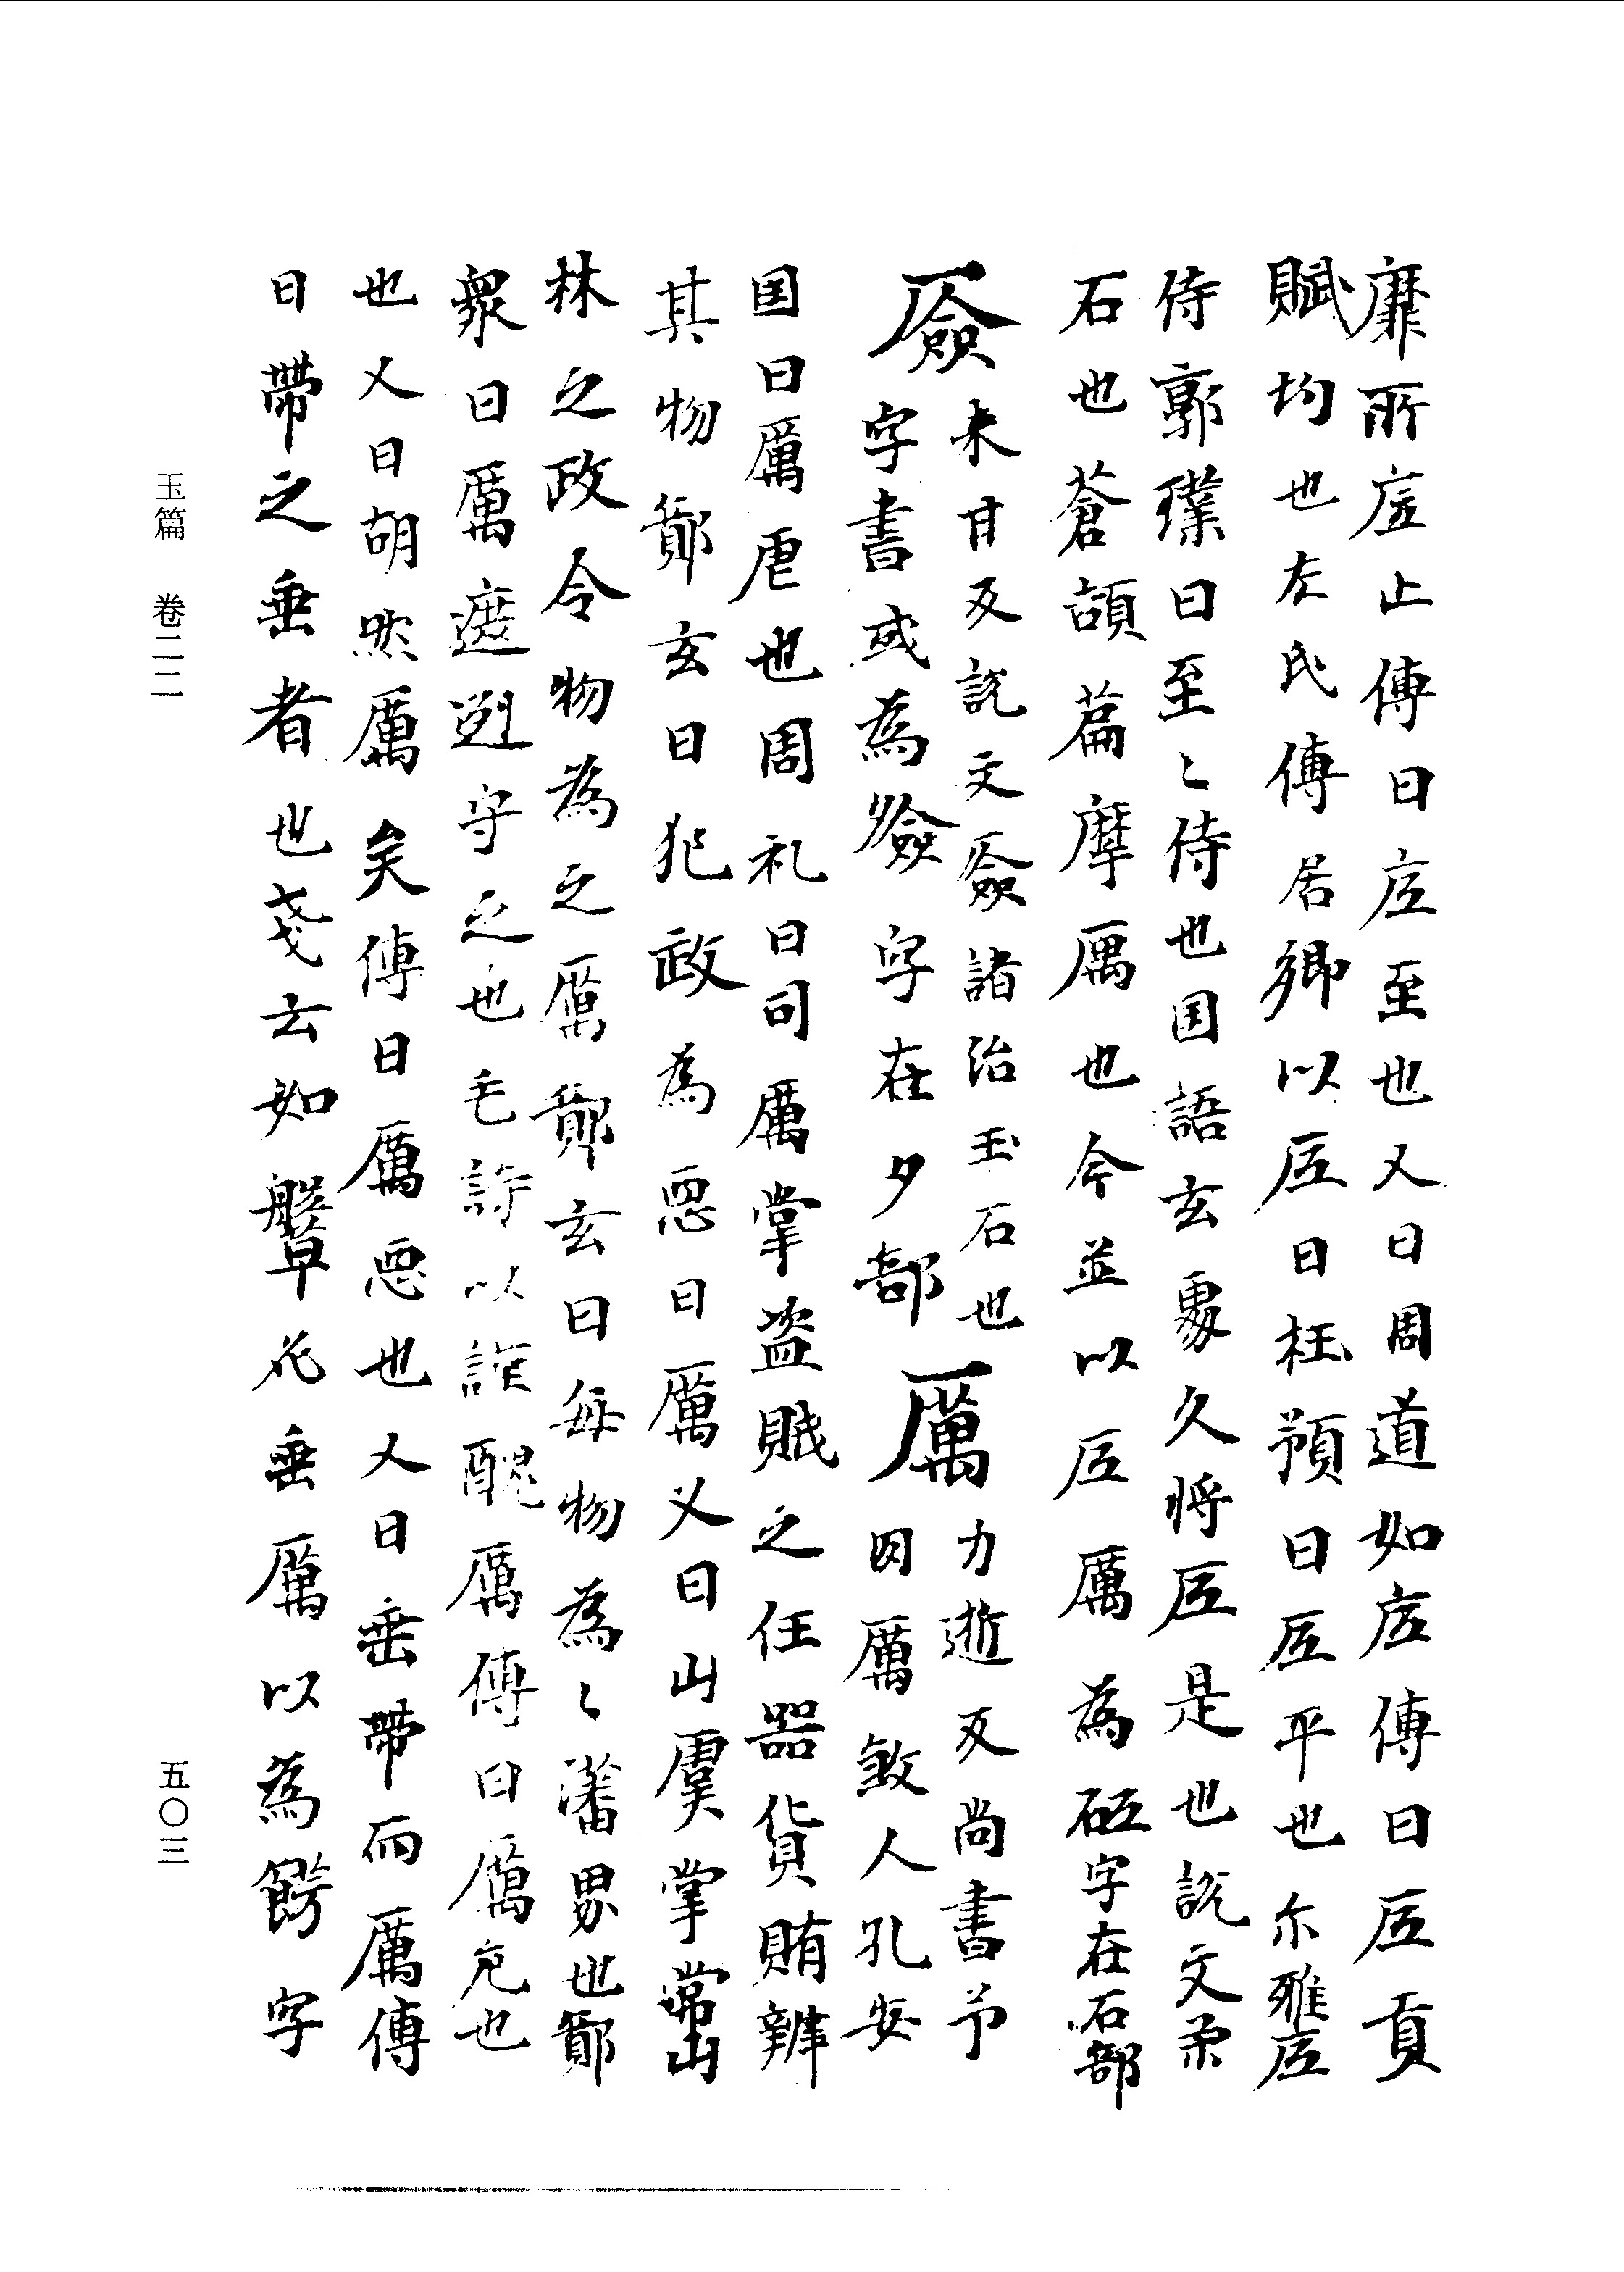 靡所㡳止傳曰㡳至也又曰周道如㡳傳曰厎貢
賦均也左氏傳居卿以厎日杜預曰厎平也尓雅㡳
待郭璞曰至〻待也国語玄處久將厎是也說文柔
石也蒼頡篇摩厲也今並以厎厲為砥字在石部
厱
来甘反說文厱諸治玉石也
字書或為字在夕部
厲
力逝反尚書予
罔厲敘人孔安
国曰厲虐也周礼曰司厲掌盜賊之任器貨賄辨
其物鄭玄曰犯政為惡曰厲又曰山虞掌山
林之政令物為之厲鄭玄曰每物為〻藩界也鄭
衆曰厲遮迾守之也毛詩以謹醜厲傳曰厲危也
也又曰胡然厲矣傳曰厲惡也又曰垂帶而厲傳
曰帶之垂者也戔云如鞶花垂厲以為字
玉篇 卷二二
五〇三